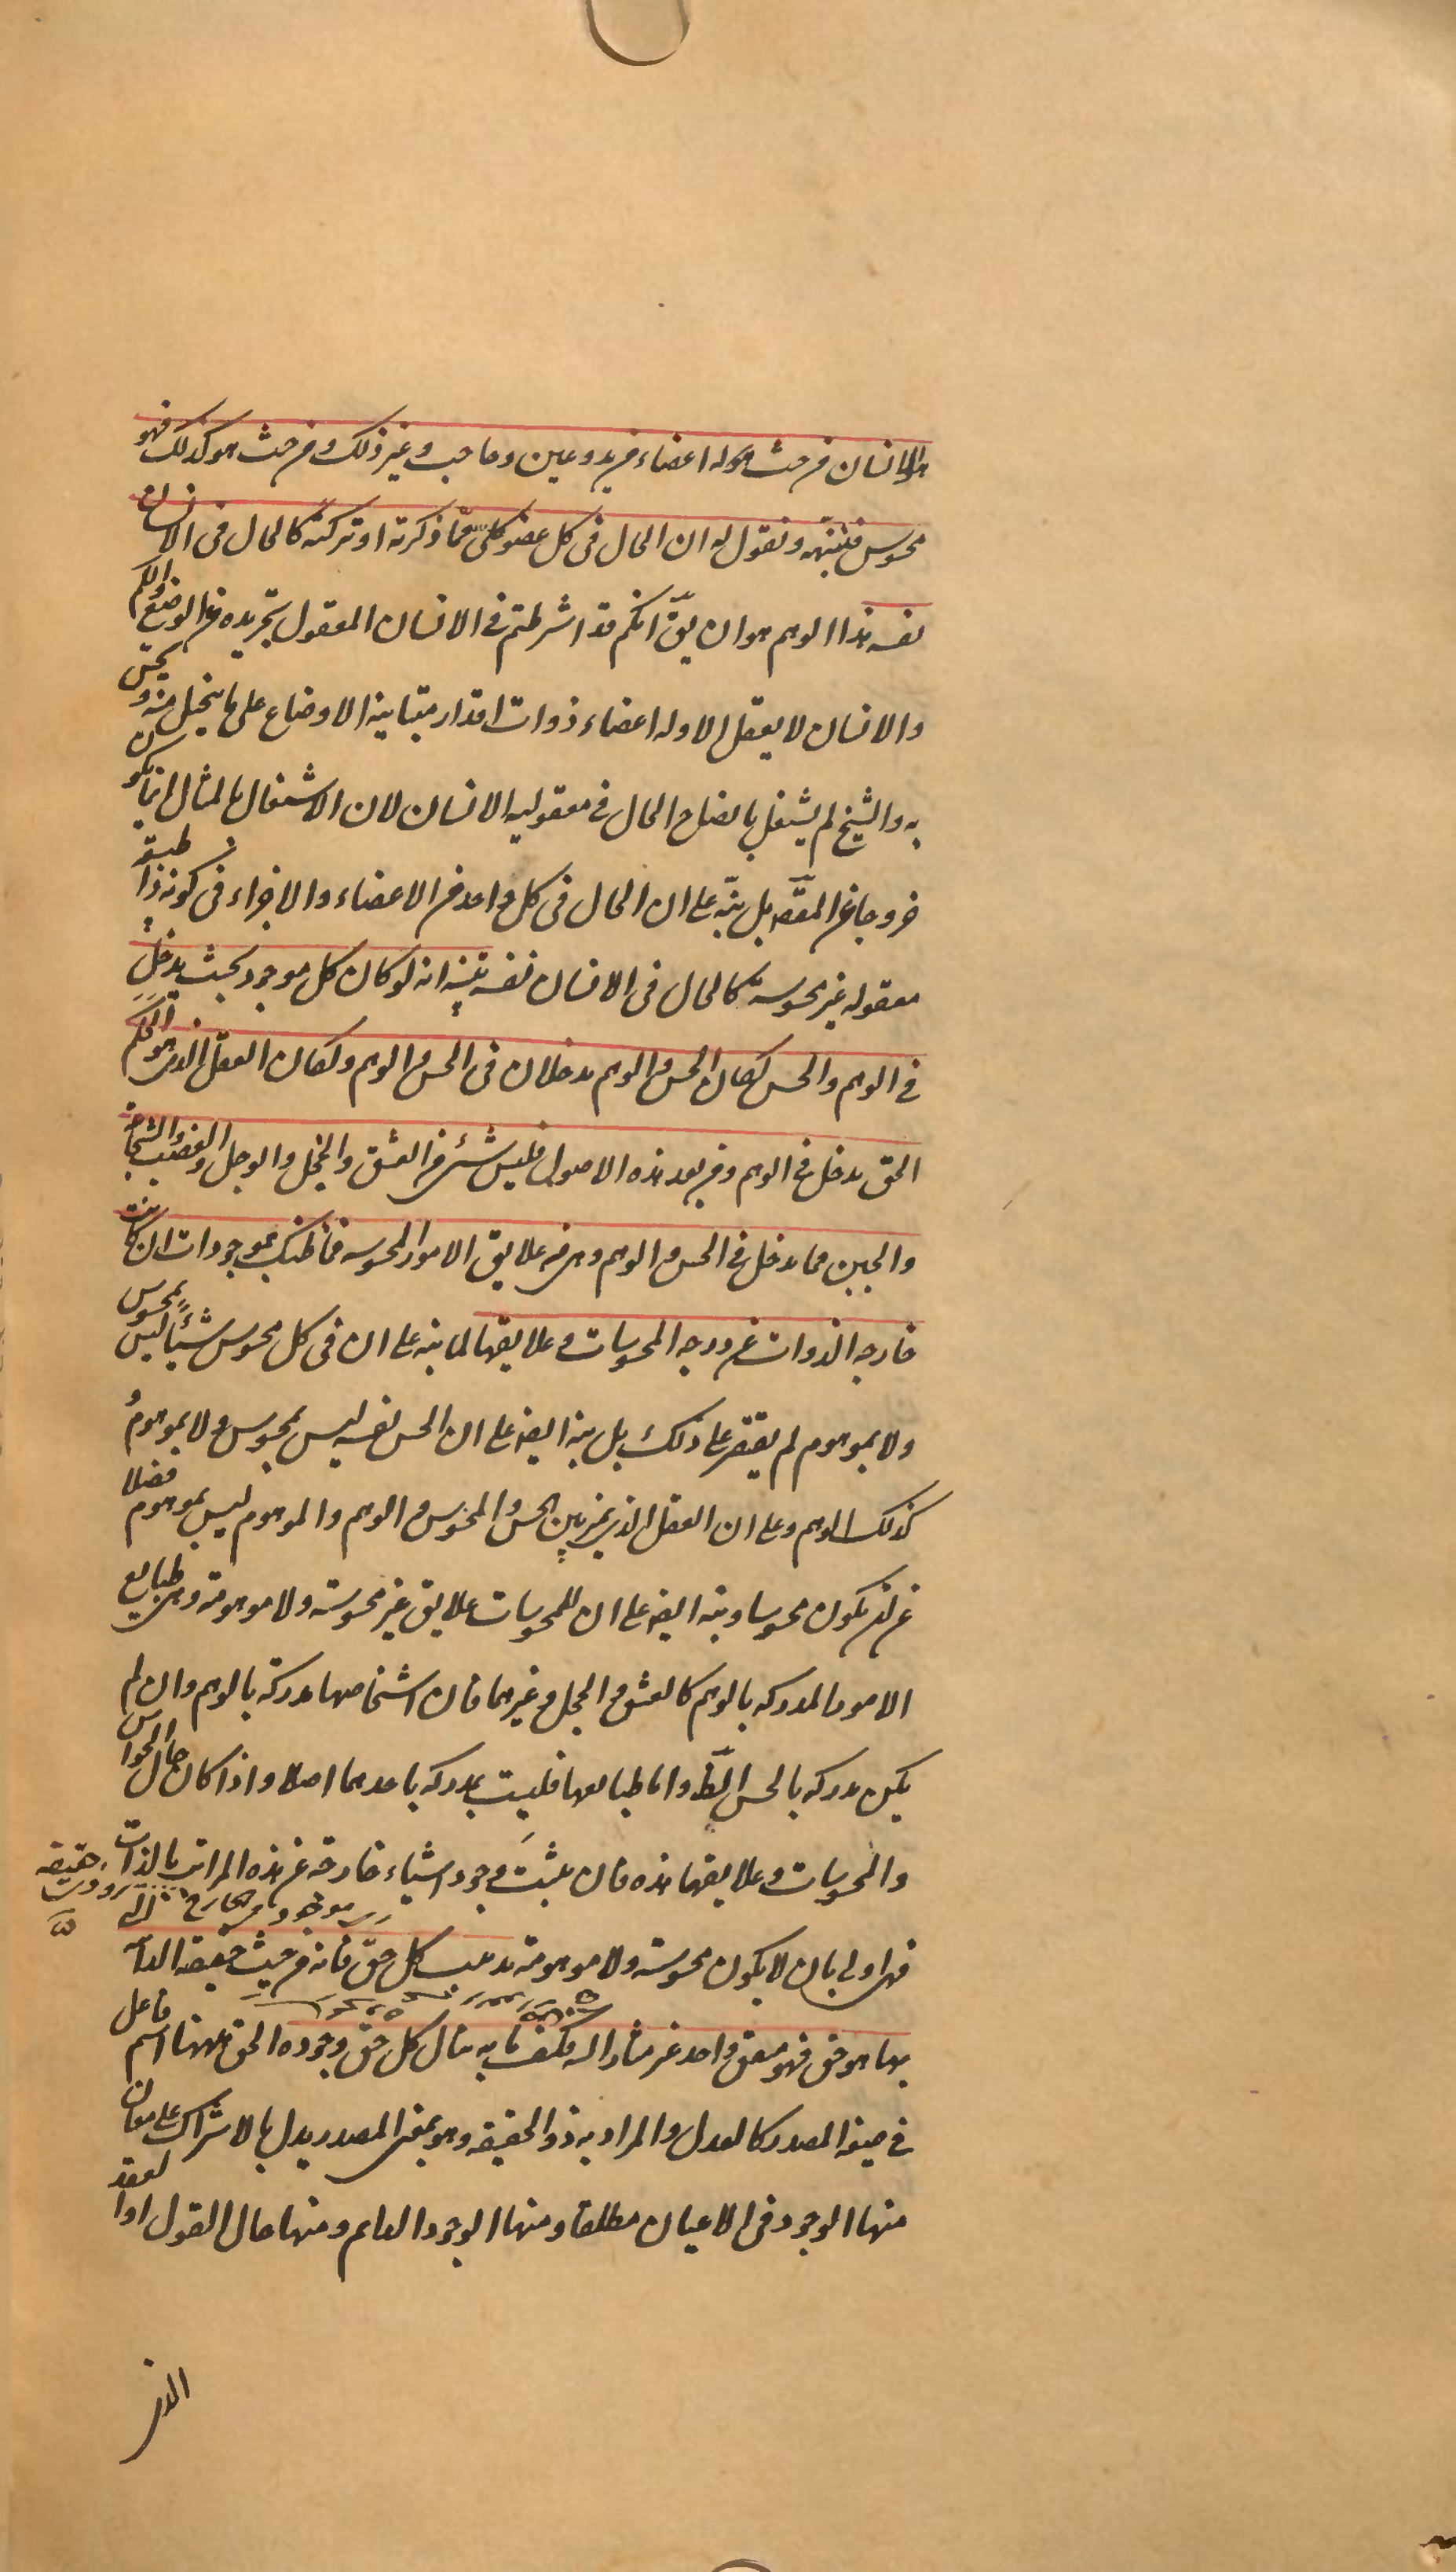 الانسان من حيث هو له اعضاء من يد وعين وحاجب وغير ذلك ومن حيث هو كذلك فهو
محسوس فننبّهه ونقول له ان الحال فى كل عضو كلىّ ممّا ذكرته او تركته كالحال فى الانسان
نفسه هذا الوهم هو ان يقّ انكم قد اشرطتم فى الانسان المعقول تجريده عن الوضع والكم
والانسان لا يعقل الا وله اعضاء ذوات اقدار متباينة الاوضاع على ما يتخيل منه ويحس
به والشيخ لم يشتغل بايضاح الحال فى معقولية الانسان لان الاشتغال بالمثال انما يكون
خروجا عن المقّص بل نبّه على ان الحال فى كل واحد من الاعضاء والاجزاء فى كونه ذا طبيعة
معقوله غير محسوسة كالحال فى الانسان نفسه تنبيه انه لو كان كل موجود بحيث يدخل
فى الوهم والحس لكان الحس والوهم يدخلان فى الحس والوهم ولكان العقل الذى هو الحكم
الحق يدخل فى الوهم ومن بعد هذه الاصول فليس شئ من العشق والخجل والوجل والغضب والشجاعة
والجبن مما يدخل فى الحس والوهم وهى من علايق الامور المحسوسه فما ظنك بموجودات ان كانت
خارجة الذوات عن درجه المحسوسات وعلايقها لما نبه على ان فى كل محسوس شيئًا ليس بمحسوس
ولا بموهوم لم يقتصر على ذلك بل نبه ايضه على ان الحس نفسه ليس بمحسوس ولا بموهوم و
كذلك الوهم وعلى ان العقل الذى يميز بين الحس والمحسوس والوهم والموهوم ليس بموهوم فضلا
عن ان يكون محسوسا ونبه ايضه على ان للمحسوسات علايق غير محسوسة ولا موهومة وهى طبايع
الامور المدركه بالوهم كالعشق والخجل وغيرهما فان اشخاصها مدركة بالوهم وان لم
يكن مدركه بالحس الظّ واما طبايعها فليست بمدركه باحدهما اصلا واذا كان حال الحواس
والمحسوسات وعلايقها هذه فان يثبت وجود اشياء خارجة عن هذه المراتب بالذات
فهى اولى بان لا يكون محسوسة ولا موهومة تذنيب كل حقّ فانه من حيث حقيقته الذاتية
بها هو حق فهو متفق واحد غير مشار اليه فكيف ما به ينال كل حق وجوده الحق ههنا اسم فاعل
فى صيغة المصدر كالعدل والمراد به ذو الحقيقه وهو بمعنى المصدر يدل بالاشتراك على معان
منها الوجود فى الاعيان مطلقا ومنها الوجود الدايم ومنها حال القول او العقد
الذى